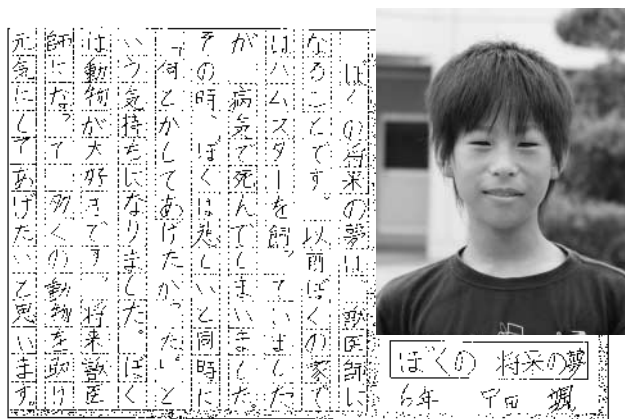 ぼくの将来の夢
6年 甲田
ぼくの将来の夢は、獣医師に
なることです。以前ぼくの家で
はハムスターを飼っていました
が、病気で死んでしまいました。
その時、ぼくは悲しいと同時に
「何とかしてあげたかった。」と
いう気持ちになりました。ぼく
は動物が大好きです。将来獣医
師になって、多くの動物を助け
元気にしてあげたいと思います。